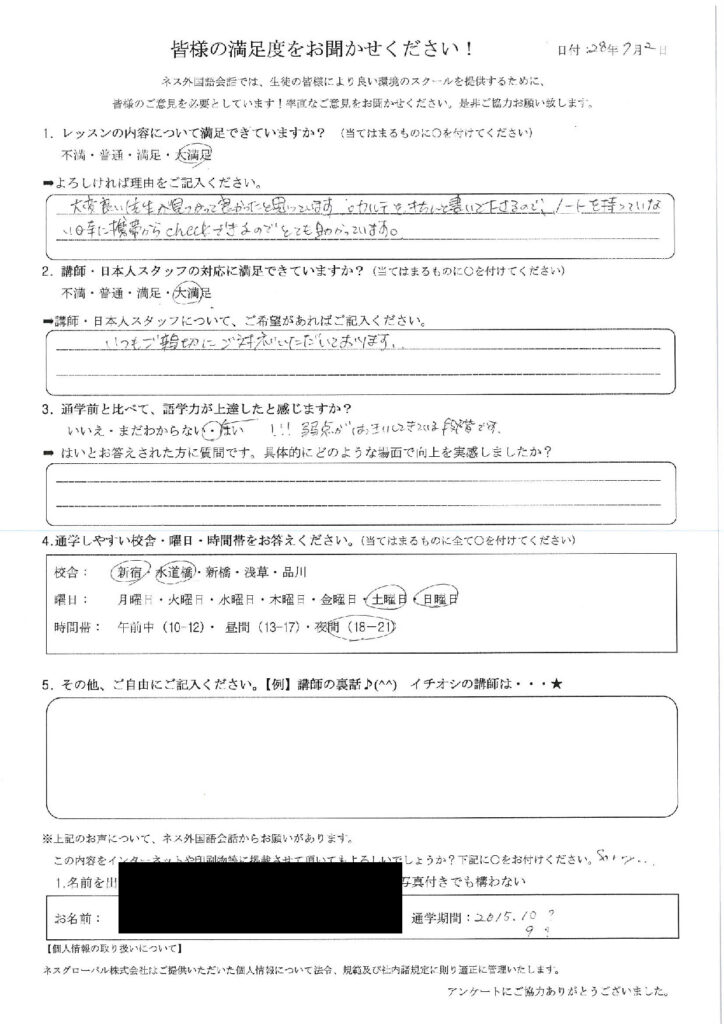 皆様の満足度をお聞かせください!
日付:28年7月2日
ネス外国語会話では、生徒の皆様により良い環境のスクールを提供するために、
皆様のご意見を必要としています!率直なご意見をお聞かせください。是非ご協力お願い致します。
1. レッスンの内容について満足できていますか? (当てはまるものに○を付けてください)
不満・普通・満足・大満足
➡よろしければ理由をご記入ください。
大変良い先生が見つかって良かったと思っています カルテもきちんと書いて下さるので、ノートを持っていな
い日等に携帯からcheckできるのでとても助かっています。
2. 講師・日本人スタッフの対応に満足できていますか?(当てはまるものに○を付けてください)
不満・普通・満足・大満足
➡講師・日本人スタッフについて、ご希望があればご記入ください。
いつもご親切にご対応いただいております。
3. 通学前と比べて、語学力が上達したと感じますか?
いいえ・まだわからない・はい !!! 弱点がはっきりしてきている段階です.
➡ はいとお答えされた方に質問です。具体的にどのような場面で向上を実感しましたか?
4.通学しやすい校舎・曜日・時間帯をお答えください。(当てはまるものに全て○を付けてください)
校舎: 新宿・水道橋・新橋・浅草・品川
曜日: 月曜日・火曜日・水曜日・木曜日・金曜日・土曜日・日曜日
時間帯: 午前中(10-12)・ 昼間(13-17)・夜間(18-21)
5. その他、ご自由にご記入ください。【例】講師の裏話♪(^^) イチオシの講師は・・・★
※上記のお声について、ネス外国語会話からお願いがあります。
この内容をインターネットや印刷物等に掲載させて頂いてもよろしいでしょうか?下記に○をお付けください。Sorry...
1.名前を出 写真付きでも構わない
お名前: 通学期間:2015.10?
9?
【個人情報の取り扱いについて】
ネスグローバル株式会社はご提供いただいた個人情報について法令、規範及び社内諸規定に則り適正に管理いたします。
アンケートにご協力ありがとうございました。